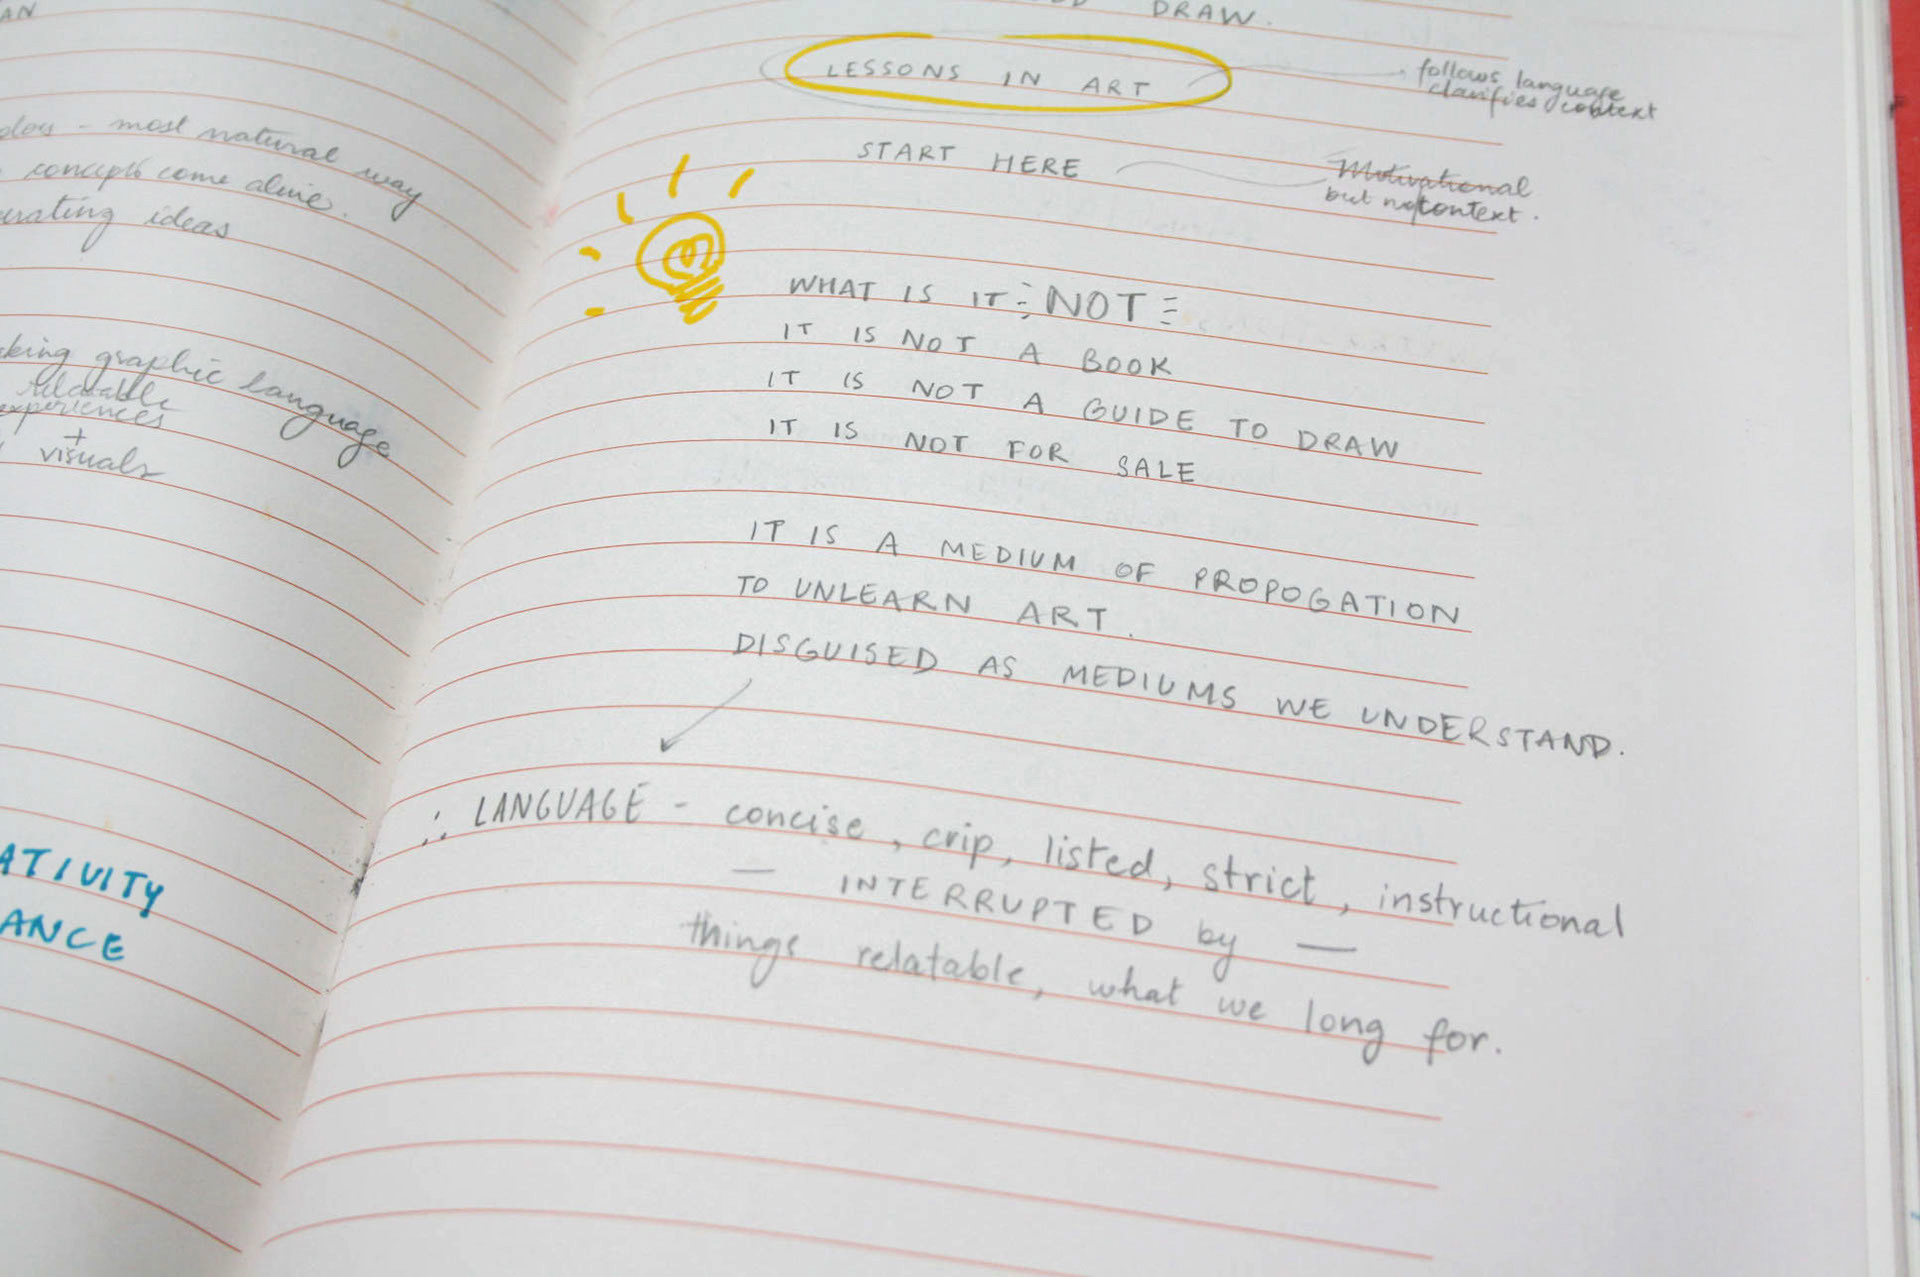 AN
most natural way
concepts come alive.
ideas
graphic language
relatable
experiences
+
visuals
ATIVITY
ANCE
DRAW.
LESSONS IN ART
follows language
clarifies context
START HERE
Motivational
but not context.
WHAT IS IT NOT
IT IS NOT A BOOK
IT IS NOT A GUIDE TO DRAW
IT IS NOT FOR SALE
IT IS A MEDIUM OF PROPOGATION
TO UNLEARN ART.
DISGUISED AS MEDIUMS WE UNDERSTAND.
∴ LANGUAGE - concise, crip, listed, strict, instructional
— INTERRUPTED by —
things relatable, what we long for.